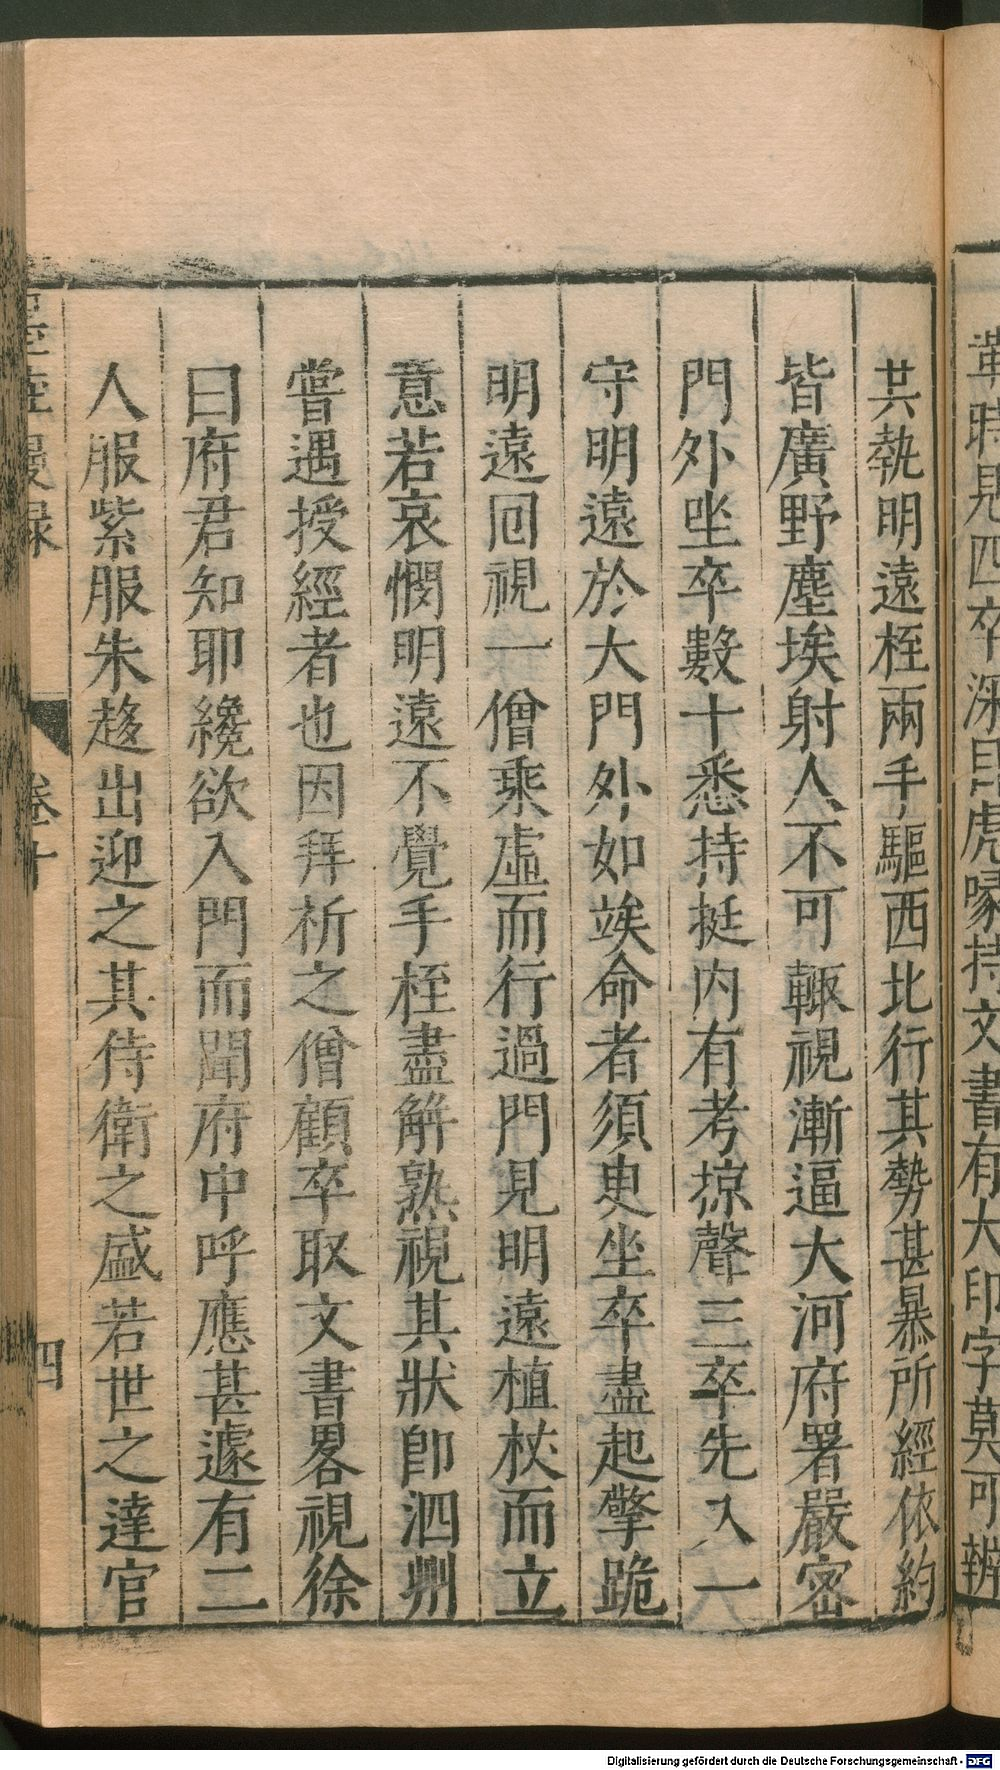 輩時見四卒深目虎喙持文書有大印字莫可辨
共執明遠桎兩手驅西北行其勢甚暴所經依約
皆廣野塵埃射人不可輒視漸逼大河府署嚴密
門外坐卒數十悉持挺内有考掠聲三卒先入一
守明遠於大門外如竢命者須臾坐卒盡起擎跪
明遠回視一僧乘虛而行過門見明遠植杖而立
意若哀憫明遠不覺手桎盡解熟視其狀卽泗州
嘗遇授經者也因拜祈之僧顧卒取文書畧視徐
曰府君知耶纔欲入門而聞府中呼應甚遽有二
人服紫服朱趍出迎之其侍衛之盛若世之達官
漫録
卷十
四
Digitalisierung gefördert durch die Deutsche Forschungsgemeinschaft - DFG